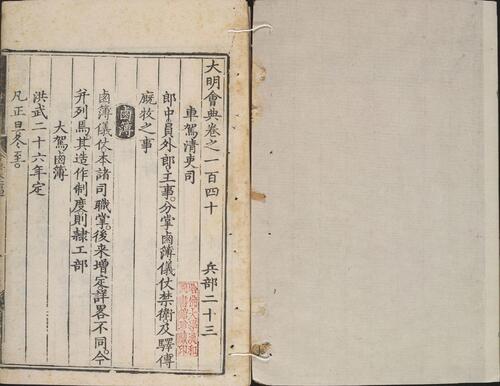 大明會典卷之一百四十
兵部二十三
車駕清吏司
郎中員外郎主事分掌鹵簿儀仗禁衛及驛傳
廐牧之事
鹵簿
鹵簿儀仗本諸司職掌後來增定詳畧不同今
并列焉其造作制度則隸工部
大駕鹵簿
洪武二十六年定
凡正旦冬至